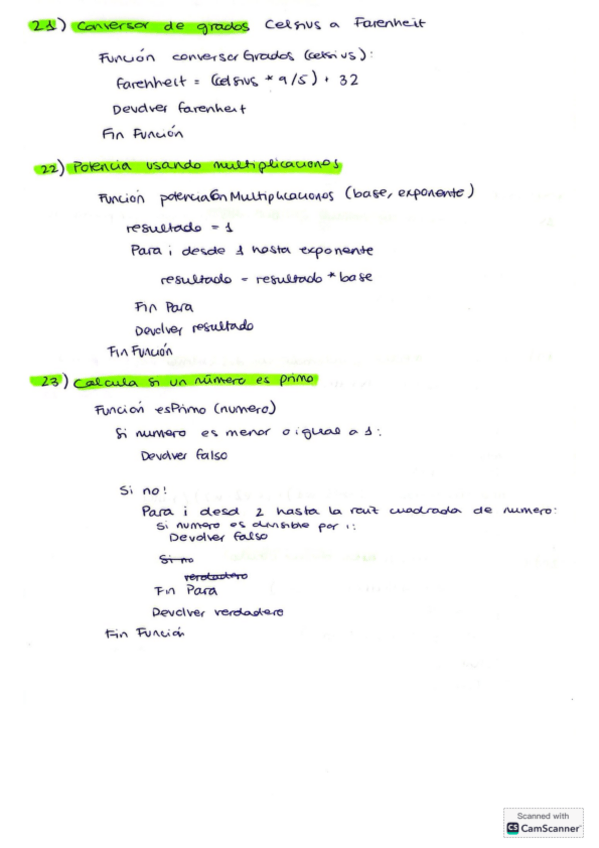 21) Conversor de grados Celsius a Farenheit
Función conversorGrados (celsius):
farenheit = (celsius * 9/5) + 32
Devolver farenheit
Fin Función
22) Potencia usando multiplicaciones
Función potenciaEnMultiplicaciones (base, exponente)
resultado = 1
Para i desde 1 hasta exponente
resultado = resultado * base
Fin Para
Devolver resultado
Fin Función
23) Calcula si un número es primo
Función esPrimo (numero)
Si numero es menor o igual a 1:
Devolver falso
Si no:
Para i desd 2 hasta la raíz cuadrada de numero:
Si numero es divisible por i:
Devolver falso
Si no
verdadero
Fin Para
Devolver verdadero
Fin Función
Scanned with
CS CamScanner